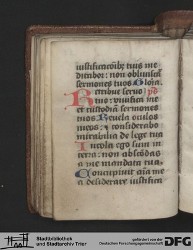 iustificacõib; tuis me
ditabor : non obliuiscar
sermones tuos Gloria.
Retribue seruo p̄s
tuo : viuifica me
et custodiā sermones
tuos Reuela oculos
meos : et considerabo
mirabilia de lege tua
Incola ego sum in
terra : non abscōdas
a me mandata tua
Concupiuit aīa mea
desiderare iustifica
Stadtbibliothek
und Stadtarchiv Trier
gefördert von der
DFG
Deutschen Forschungsgemeinschaft